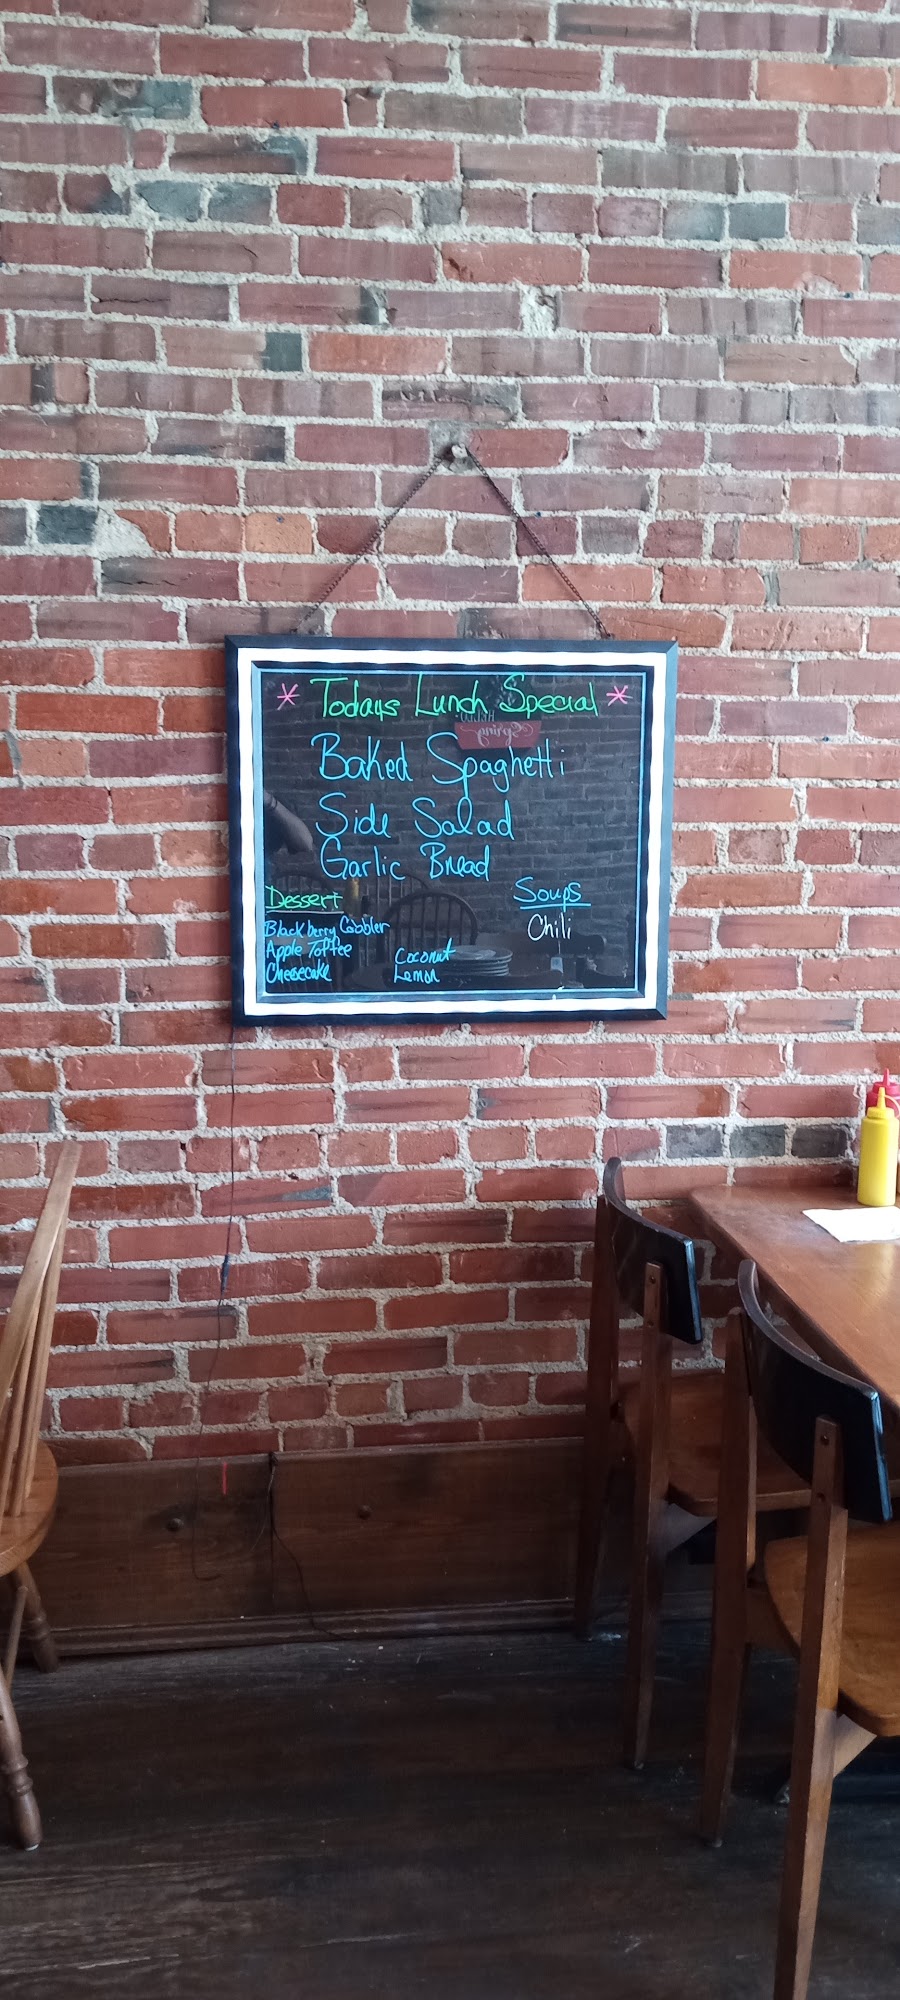 * Todays Lunch Special *
Baked Spaghetti
Side Salad
Garlic Bread
Dessert
Blackberry Cobbler
Apple Toffee
Cheesecake
Coconut
Lemon
Soups
Chili